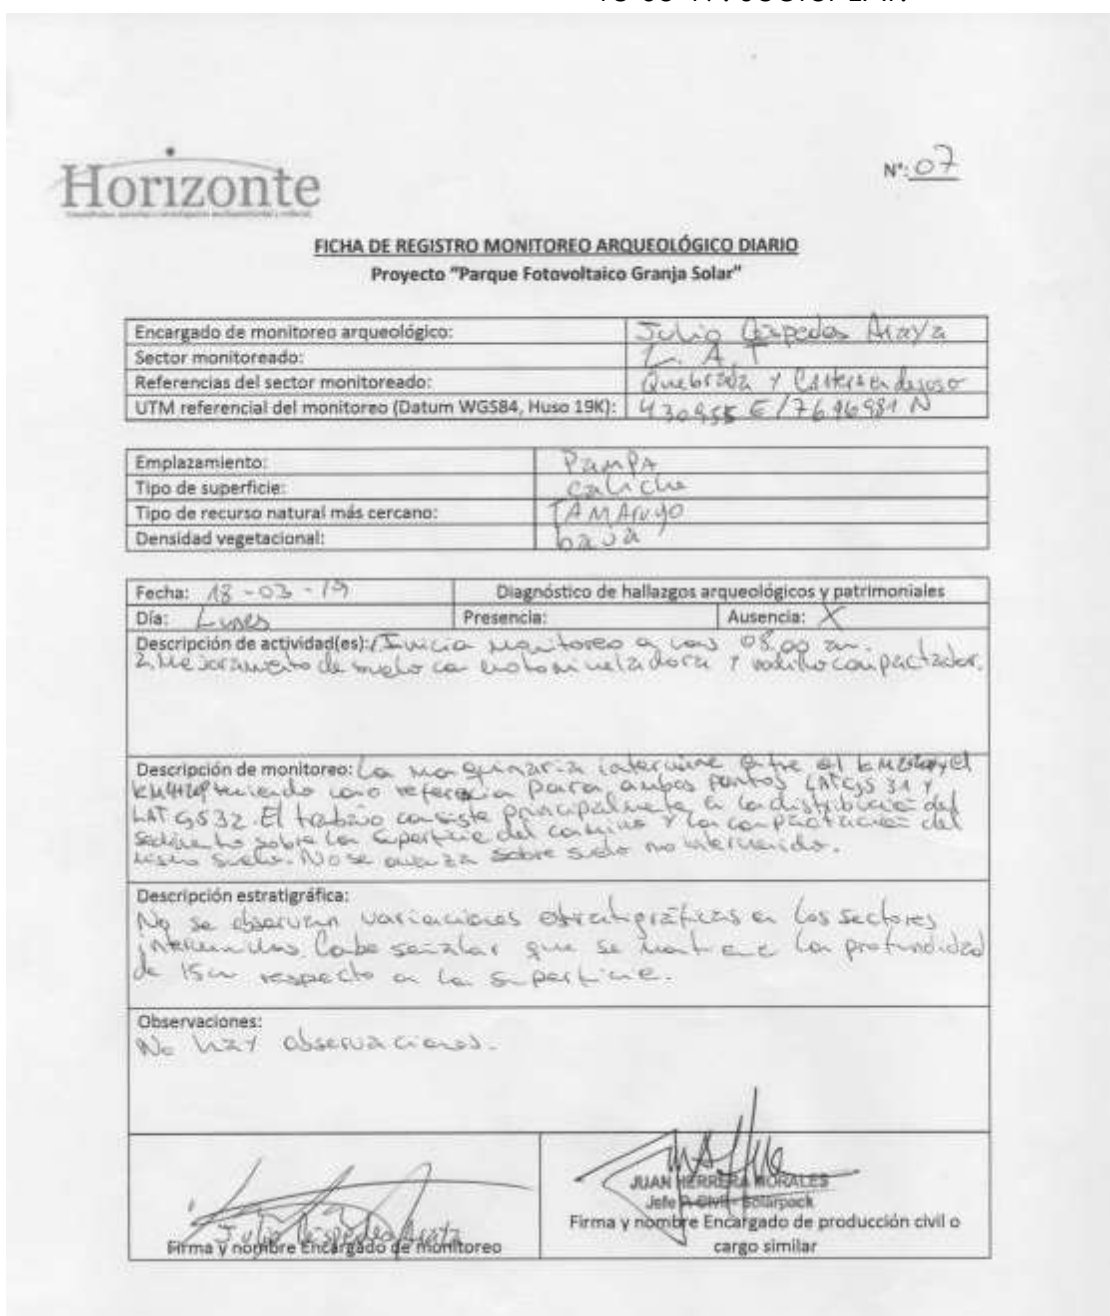 Horizonte
N°: 07
FICHA DE REGISTRO MONITOREO ARQUEOLÓGICO DIARIO
Proyecto "Parque Fotovoltaico Granja Solar"
Encargado de monitoreo arqueológico: Julio Céspedes Araya
Sector monitoreado: L.A.T
Referencias del sector monitoreado: Quebrada y
UTM referencial del monitoreo (Datum WGS84, Huso 19K): 430955 E/7696981 N
Emplazamiento: Pampa
Tipo de superficie: caliche
Tipo de recurso natural más cercano: TAMArugo
Densidad vegetacional: baja
Fecha: 18-03-19 Diagnóstico de hallazgos arqueológicos y patrimoniales
Día: Lunes Presencia: Ausencia: X
Descripción de actividad(es): 1. Inicia monitoreo a las 08.00 am.
2. Mejoramiento de suelo con motoniveladora y rodillo compactador.
Descripción de monitoreo: La maquinaria interviene entre el km y el
teniendo como referencia para ambos puntos LAT GS 31 y
LAT GS 32. El trabajo consiste principalmente en la distribución del
sedimento sobre la superficie del camino y la compactación del
mismo suelo. No se avanza sobre suelo no intervenido.
Descripción estratigráfica:
No se observan variaciones estratigráficas en los sectores
intervenidos. Cabe señalar que se mantiene la profundidad
de 15cm respecto a la superficie.
Observaciones:
No hay observaciones.
Julio Céspedes Araya
Firma y nombre Encargado de monitoreo
JUAN HERRERA MORALES
Jefe P. Civil - Solarpack
Firma y nombre Encargado de producción civil o
cargo similar